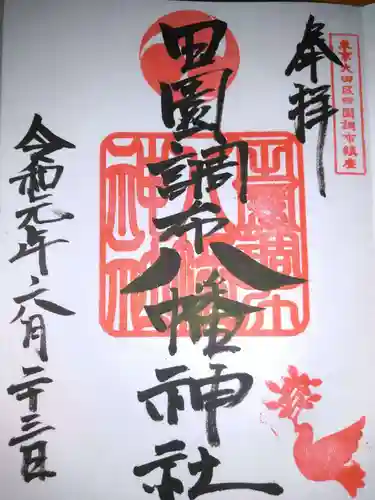 東京大田区田園調布鎮座
奉拝
田園調布八幡神社
令和元年六月二十三日